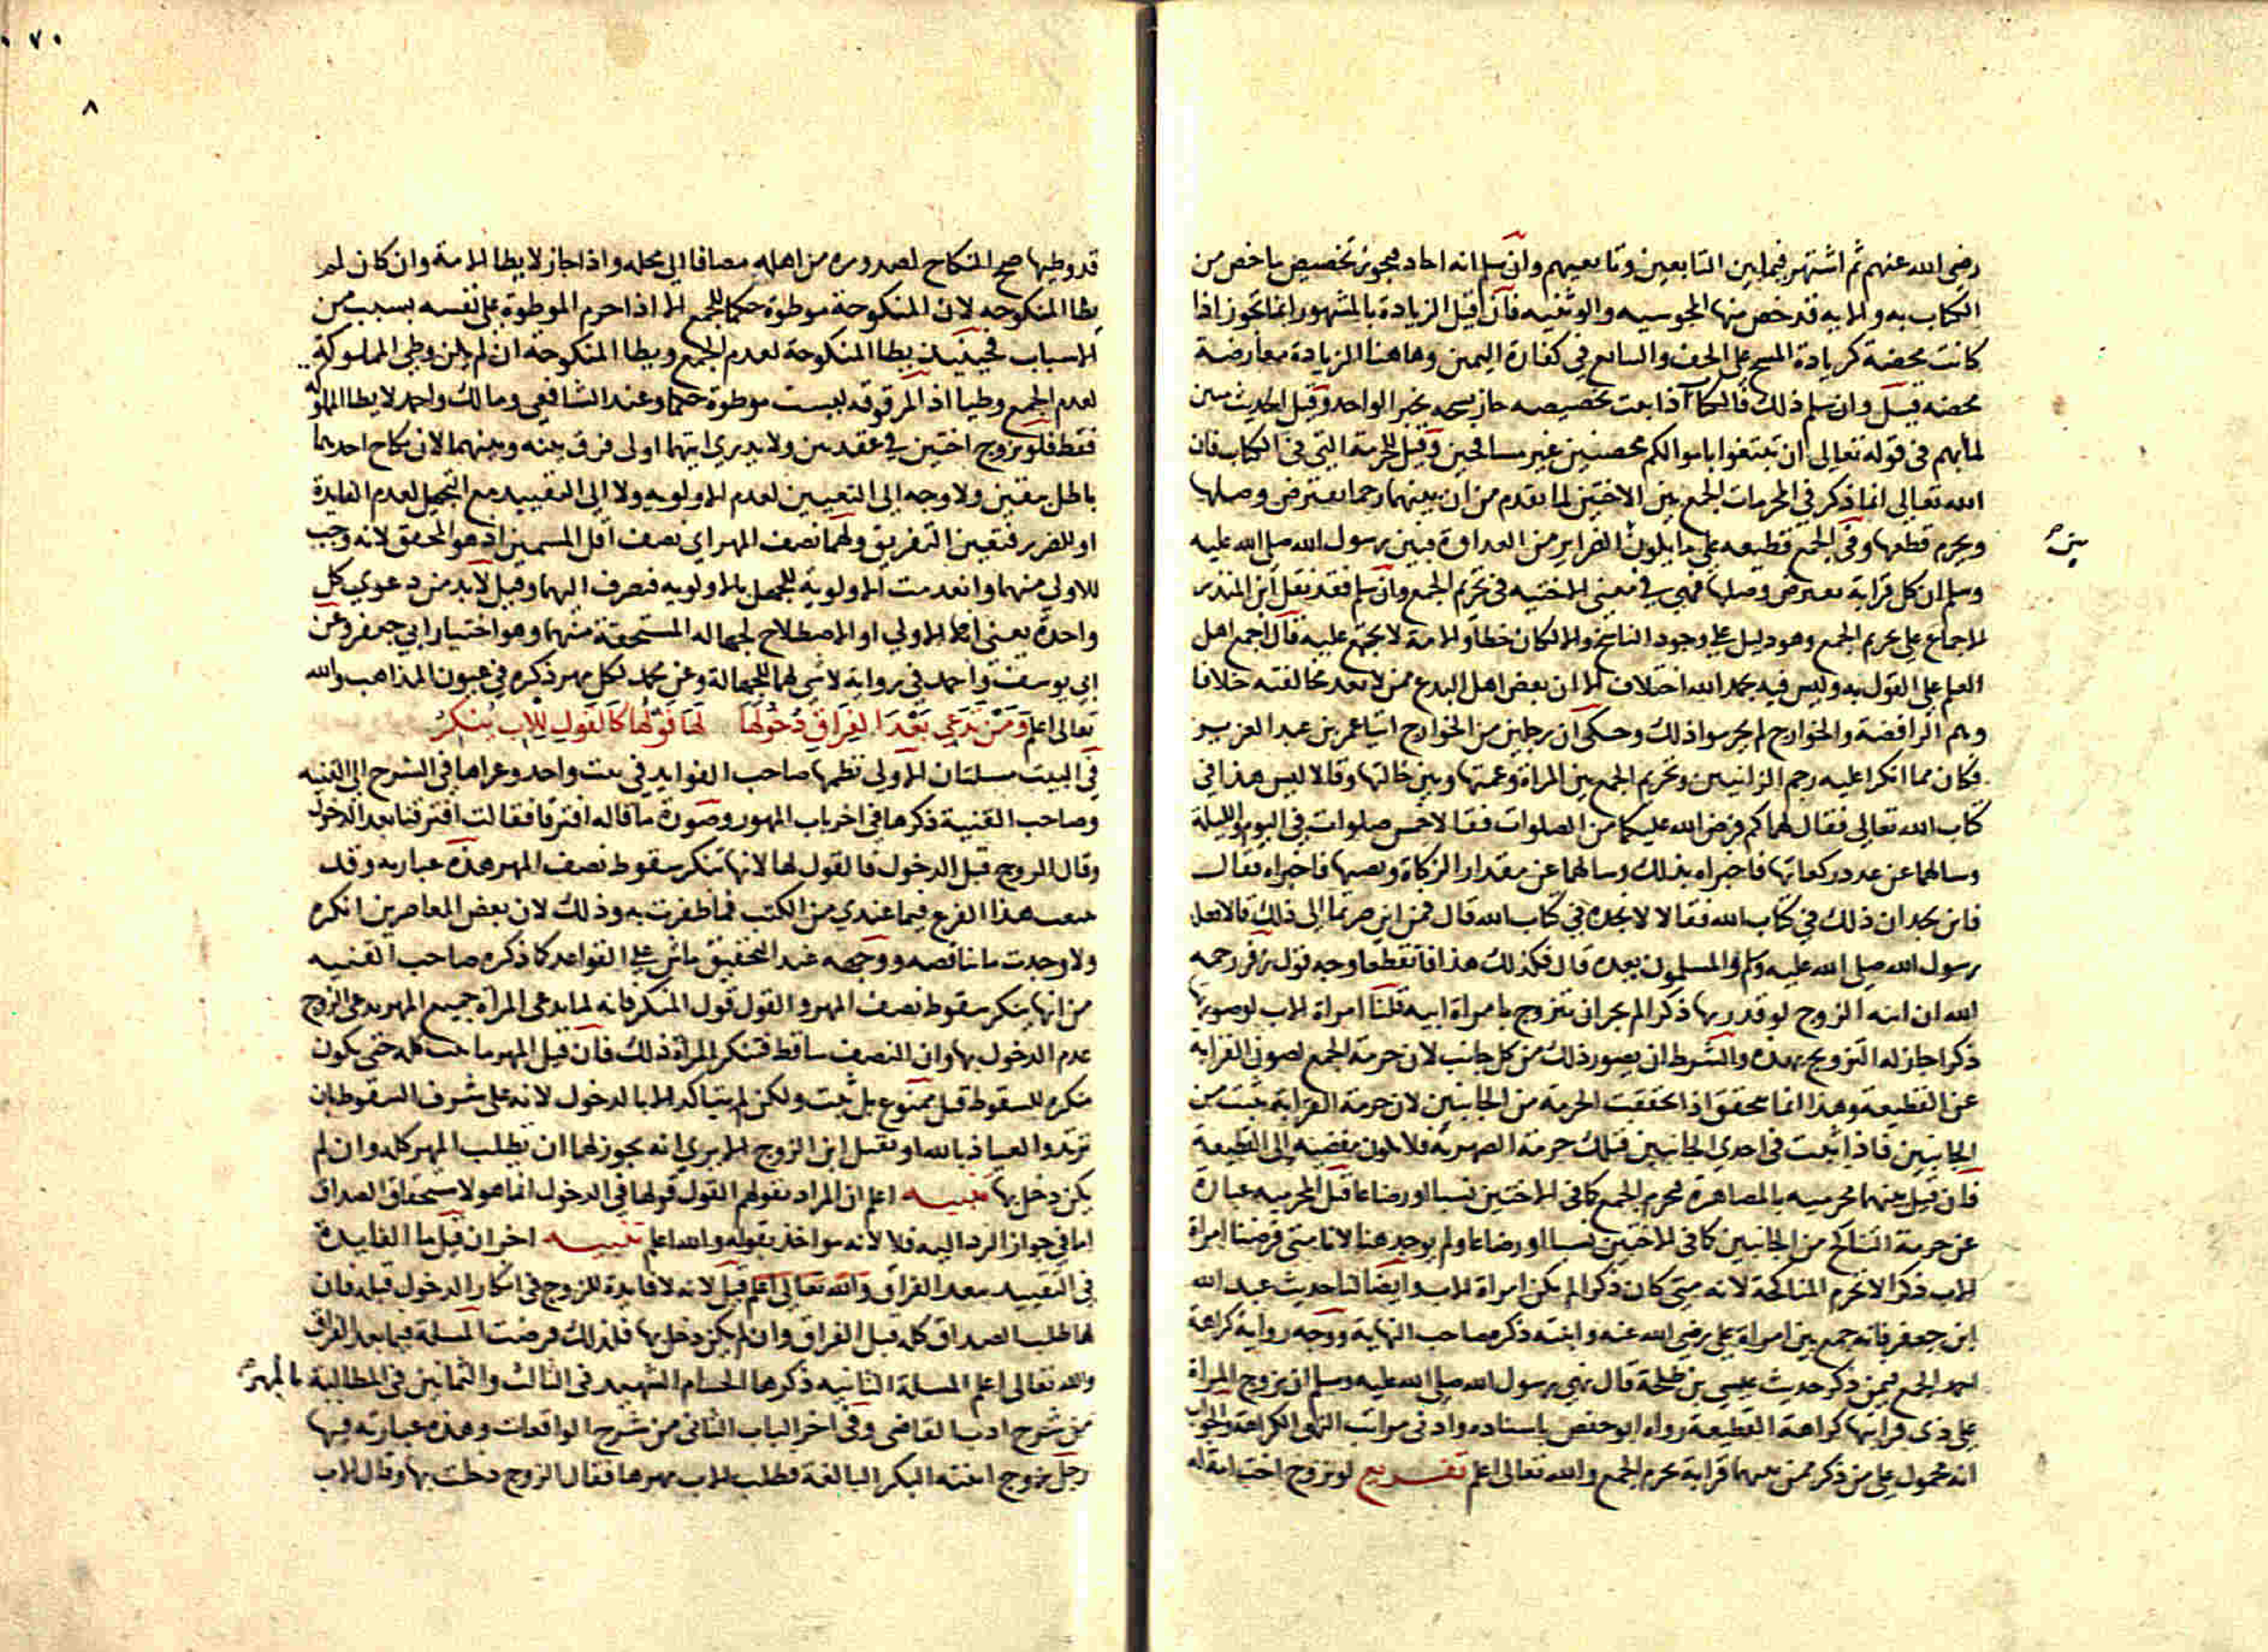 رضى الله عنهم ثم اشتهر فيما بين التابعين وتابعيهم وان سلم انه احاد فيجوز تخصيص ما خص من
الكتاب به والايه قد خص منها المجوسيه والوثنيه فان قيل الزيادة بالمشهور انما تجوز اذا
كانت محضة كزيادة المسح على الخف والتتابع في كفارة اليمين وهاهنا الزيادة معارضة
محضه قيل وان سلم ذلك فالكتاب اذا بعث تخصيصه جاز بخبر الواحد وقيل الحديث مبين
لما بهم فى قوله تعالى ان تبتغوا باموالكم محصنين غير مسافحين وقيل للحرمة التي فى الكتاب فان
الله تعالى انما ذكر في المحرمات الجمع بين الاختين لما تقدم من ان بينهما رحما يفترض وصلها
ويحرم قطعها وفى الجمع قطيعه على ما يكون الضراير من العداوة فبين رسول الله صلى الله عليه
بين
وسلم ان كل قرابة يفترض وصلها فهى في معنى الاختيه فى تحريم الجمع وان سلم فقد نقل ابن المنذر
الاجماع على تحريم الجمع وهو دليل على وجود الناسخ والا لكان خطا والامة لا تجتمع عليه قال اجمع اهل
العلم على القول به وليس فيه بحمد الله اختلاف الا ان بعض اهل البدع ممن لا تعد مخالفته خلافا
وهم الرافضة والخوارج لم يحرموا ذلك وحكى ان رجلين من الخوارج اتيا عمر بن عبد العزيز
فكان مما انكرا عليه رجم الزانيين وتحريم الجمع بين المراة وعمتها وبين خالتها وقالا ليس هذا في
كتاب الله تعالى فقال لهما كم فرض الله عليكما من الصلوات فقالا خمس صلوات في اليوم والليلة
وسالهما عن عدد ركعاتها فاخبراه بذلك وسالهما عن مقدار الزكاة ونصبها فاخبراه فقال
فاين تجدان ذلك في كتاب الله فقالا لا نجده في كتاب الله قال فمن اين صرتما الى ذلك قالا فعله
رسول الله صلى الله عليه وسلم والمسلمون بعده قال فكذلك هذا فانقطعا وجه قول زفر رحمه
الله ان ابنة الزوج لو قدرتها ذكرا لم يجز ان تتزوج بامراة ابيه قلنا امراة الاب لو صورتها
ذكرا جاز له التزويج بهذه والشرط ان يصور ذلك من كل جانب لان حرمة الجمع لصون القرابة
عن القطيعة وهذا انما يتحقق اذا تحققت الحرمة من الجانبين لان حرمة القرابة تثبت من
الجانبين فاذا ثبتت فى احدى الجانبين فتلك حرمة الصهرية فلا يكون مفضيه الى القطيعة
فان قيل بينهما محرميه بالمصاهرة فيحرم الجمع كما فى الاختين نسبا او رضاعا قيل المحرميه عبارة
عن حرمة التناكح من الجانبين كما فى الاختين نسبا او رضاعا ولم يوجد هنا لانا متى فرضنا امراة
الاب ذكرا لا تحرم المناكحة لانه متى كان ذكرا لم يكن امراة الاب وايضا لنا حديث عبد الله
ابن جعفر فانه جمع بين امراة على رضى الله عنه وابنته ذكره صاحب النهاية ووجه رواية كراهة
الجمع فيمن ذكر حديث عيسى بن طلحة قال نهى رسول الله صلى الله عليه وسلم ان تزوج المراة
على ذى قرابتها كراهة القطيعة رواه ابو حفص باسناده وادنى مراتب النهى الكراهة والجواب
انه محمول على من ذكر ممن بينهما قرابة تحرم الجمع والله تعالى اعلم تفريع لو تزوج اخت امة له
٠٧٠
٨
قد وطيها صح النكاح لصدوره من اهله مضافا الى محله واذا جاز لا يطا الامة وان كان لم
يطا المنكوحه لان المنكوحة موطوة حكما للجمع الا اذا حرم الموطوة على نفسه بسبب من
الاسباب فحينيذ يطا المنكوحة لعدم الجمع ويطا المنكوحة ان لم يكن وطى المملوكة
لعدم الجمع وطيا اذ المرقوقه ليست موطوة حكما وعند الشافعى ومالك واحمد لا يطا المملوكة
فقط فلو تزوج اختين في عقدين ولا يدرى ايتهما اولى فرق بينه وبينهما لان نكاح احدهما
باطل بيقين ولا وجه الى التعيين لعدم الاولويه ولا الى التقييد مع التجهيل لعدم الفايدة
او للضرر فتعين التفريق ولهما نصف المهر اى نصف اقل المسميين اذ هو المحقق لانه وجب
للاولى منهما وانعدمت الاولوية للجهل بالاولويه فتصرف اليهما وقيل لابد من دعوي كل
واحدة يعنى انها الاولى او الاصطلاح لجهاله المستحقة منهما وهو اختيار ابى جعفر وعن
ابى يوسف واحمد فى رواية لا شى لهما للجهالة وعن محمد لكل مهر ذكره فى عيون المذاهب والله
تعالى اعلم ومن تدعى بعد الفراق دخولها لها قولها كالقول للاب ينكر
فى البيت مسلتان الاولى نظمها صاحب الفوايد في بيت واحد وعزاها فى الشرح الى القنيه
وصاحب القنية ذكرها فى اخر باب المهور وصورة ما قاله افترقا فقالت افترقنا بعد الدخول
وقال الزوج قبل الدخول فالقول لها لانها تنكر سقوط نصف المهر هذه عبارته وقد
تتبعت هذا الفرع فيما عندى من الكتب فما ظفرت به وذلك لان بعض المعاصرين انكره
ولا وجدت ما يناقضه ووجهه عند التحقيق ماش على القواعد كما ذكره صاحب القنيه
من انها ينكر سقوط نصف المهر والقول قول المنكر فانه لما تدعى المراة جميع المهر يدعى الزوج
عدم الدخول بها وان النصف ساقط فتنكر المراة ذلك فان قيل المهر ما يثبت كله حتى يكون
منكره للسقوط قيل ممنوع بل يثبت ولكن لم يتاكد الا بالدخول لانه على شرف السقوط بان
ترتد والعياذ بالله او تقبل ابن الزوج الا يرى انه يجوز لها ان تطلب المهر كله وان لم
يكن دخل بها تنبيه اعلم ان المراد بقولهم القول قولها فى الدخول انما هو لاستحقاق الصداق
اما فى جواز الرد اليه فلا لانه مواخذ بقوله والله اعلم تنبيه اخر ان قيل ما الفايدة
فى التقييد ببعد الفراق والله تعالى اعلم قيل لانه لا فايدة للزوج فى انكار الدخول قبله فان
لها طلب الصداق كله قبل الفراق وان لم يكن دخل بها فلذلك فرضت المسلة فيما بعد الفراق
والله تعالى اعلم المسلة الثانيه ذكرها الحسام الشهيد فى الثالث والثمانين فى المطالبة بالمهر
من شرح ادب القاضى وفى اخر الباب الثانى من شرح الواقعات وهذه عبارته فيها
رجل زوج ابنته البكر البالغة فطلب الاب مهرها فقال الزوج دخلت بها وقال الاب